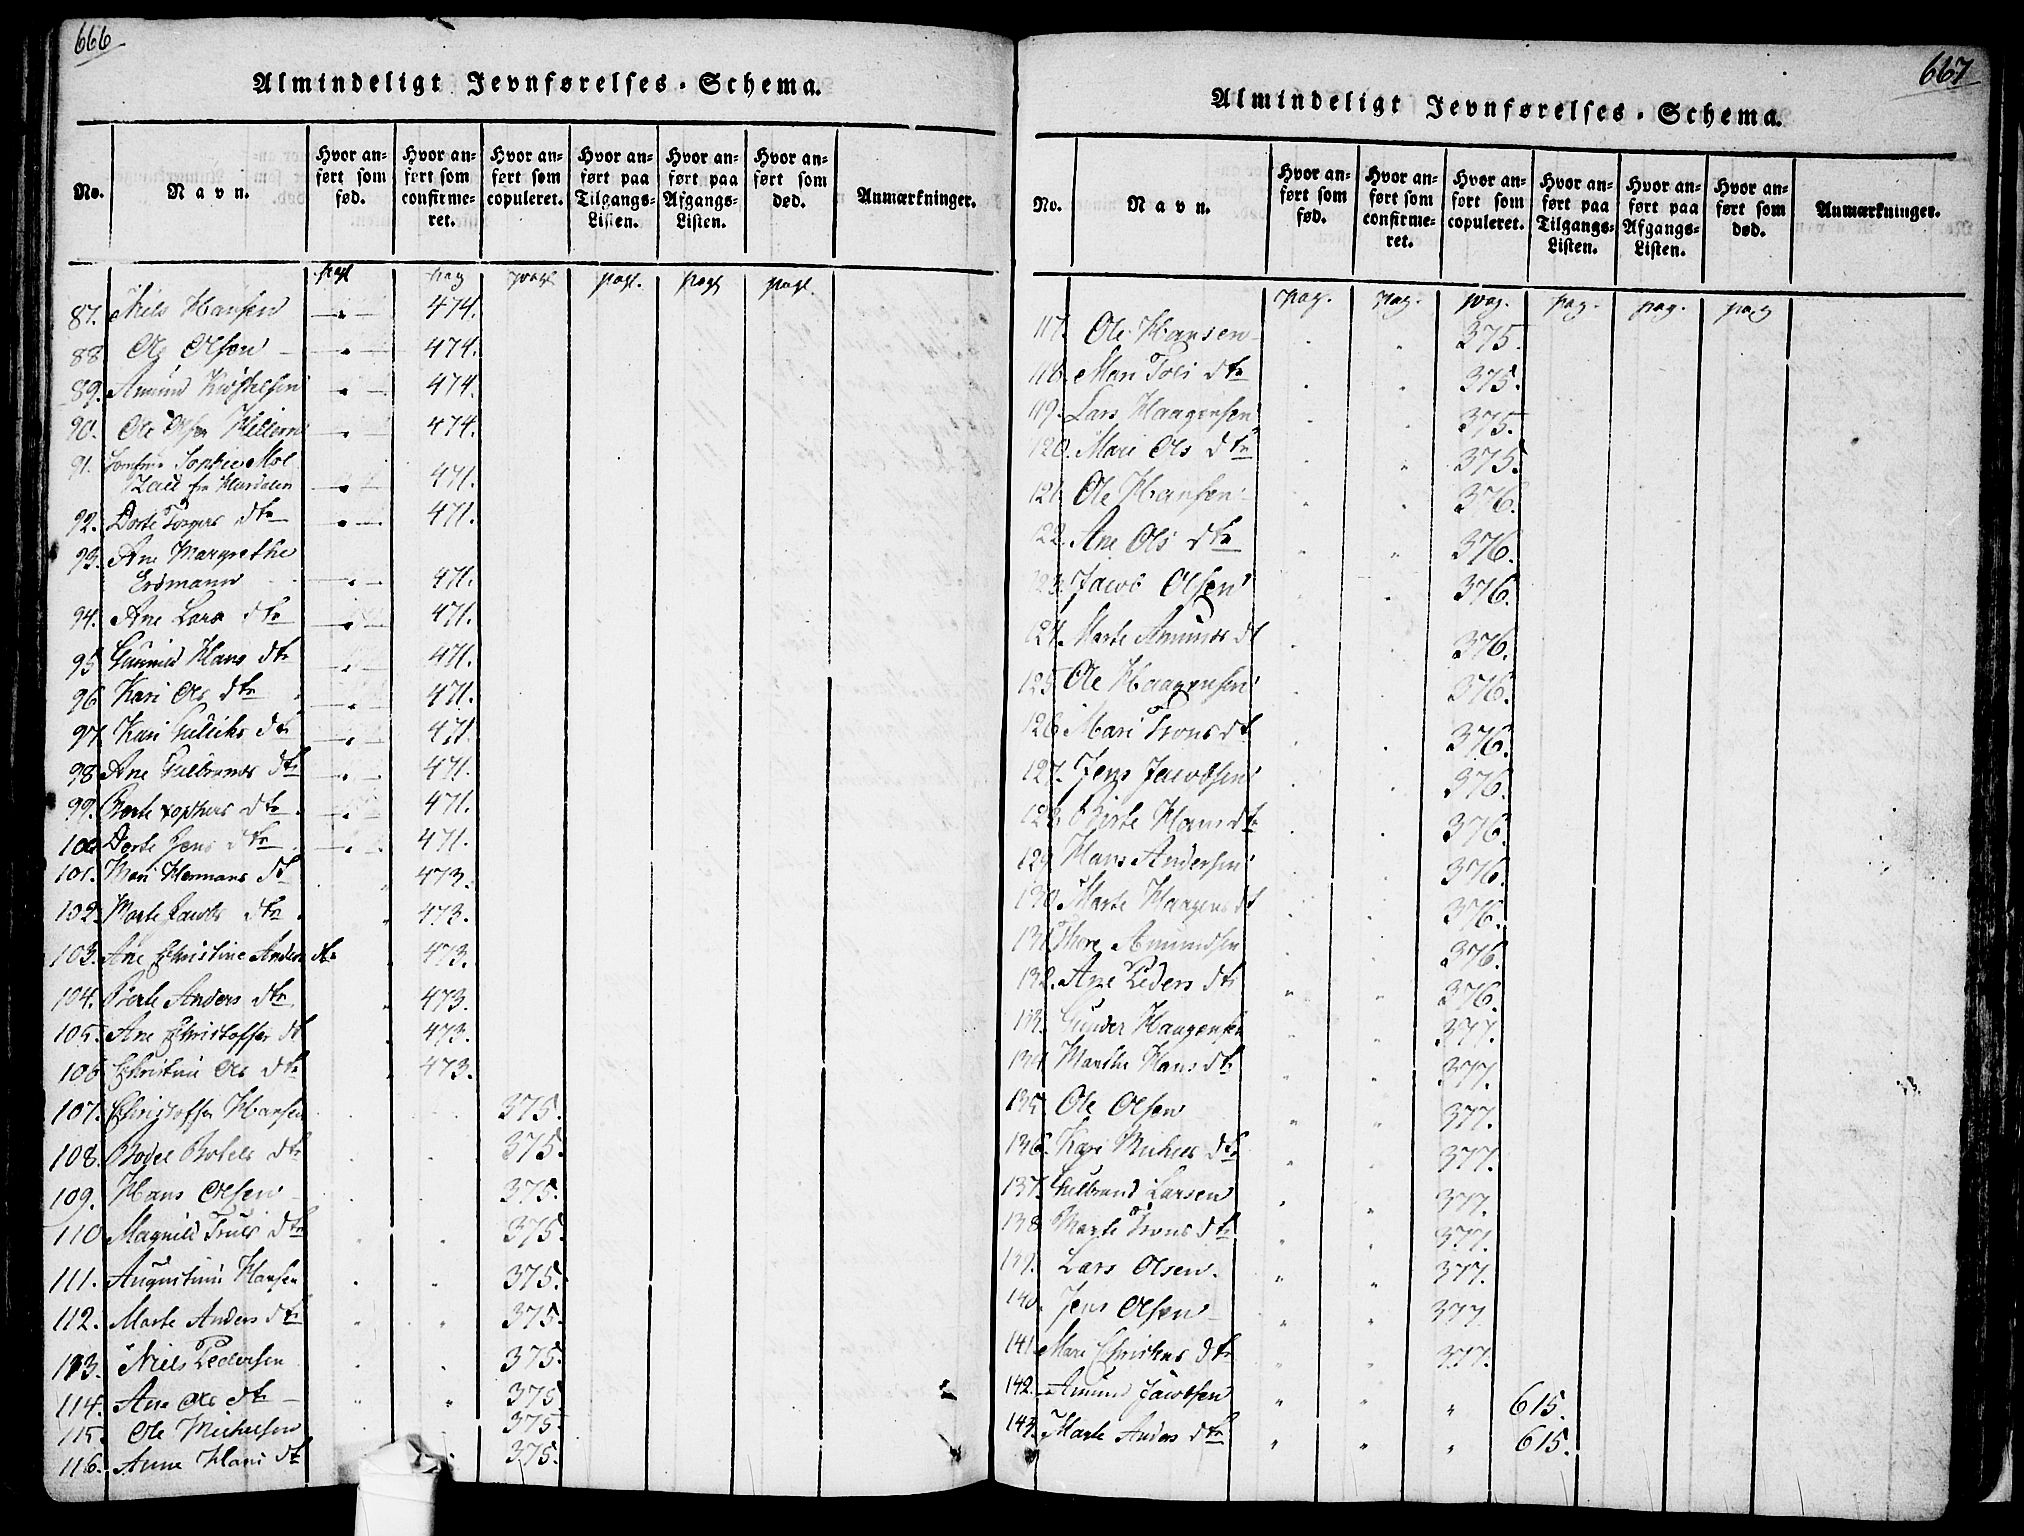 666
Almindeligt Jevnførelses-Schema.
No.
Navn.
Hvor anført som fød.
Hvor anført som confirmeret.
Hvor anført som copuleret.
Hvor anført paa Tilgangs-Listen.
Hvor anført paa Afgangs-Listen.
Hvor anført som død.
Anmærkninger.
pag pag pag pag. pag pag.
87. Niels Hansen 474.
88 Ole Olsen 474.
89. Amund 474.
90. Ole Olsen 474.
91. Sophie
471.
92. Dorte Torgers dtr 471.
93. Ane Margrethe
Erdmann 471.
94. Ane Lars dtr 471.
95 Gunild Hans dtr 471.
96 Kari Ols dtr 471.
97. Kari Gulichs dtr 471.
98 Ane Gulbrands dtr 471.
99. Berte dtr 471.
100 Dorte Jens dtr 471.
101. Mari Hermans dt 473.
102. Marte Jacobs dtr 473.
103. Ane Christine Anders dtr 473.
104. Berte Anders dtr 473.
105. Ane Christoffer dt 473.
106 Christine Ols dtr 473.
107. Christoffer Hansen 375.
108. Bodel Botels dtr 375.
109. Hans Olsen 375.
110 Magnild Truls dtr 375.
111. Augustinus Hansen 375.
112. Marte Anders dtr 375.
113. Niels Pedersen 375.
114. Ane Ols dtr 375
115. Ole Michelsen 375.
116. Anne Hans dtr 375.
667
Almindeligt Jevnførelses-Schema.
No.
Navn.
Hvor anført som fød.
Hvor anført som confirmeret.
Hvor anført som copuleret.
Hvor anført paa Tilgangs-Listen.
Hvor anført paa Afgangs-Listen.
Hvor anført som død.
Anmærkninger.
pag. pag. pag. pag. pag. pag
117. Ole Hansen 375.
118. Mari dtr 375.
119. Lars Haagensen 375.
120. Mari Ols dtr 375.
121. Ole Hansen 376.
122. Ane Ols dtr 376.
123. Jacob Olsen 376.
124. Marte Amunds dt 376.
125. Ole Haagensen 376.
126. Mari Trons dt 376.
127. Jens Jacobsen 376.
128. Berte Hans dtr 376.
129. Hans Andersen 376.
130. Marte Haagens dt 376.
131 Thore Amundsen 376.
132. Ane Peders dtr 376.
133. Gunder Haagensen 377.
134. Marthe Hans dtr 377.
135. Ole Olsen 377.
136. Kari Michels dtr 377.
137. Gulbrand Larsen 377.
138 Marte Trons dtr 377.
139. Lars Olsen. 377.
140. Jens Olsen 377
141. Mari dtr 377.
142. Amund Jacobsen 615.
143. Marte Anders dtr 615.